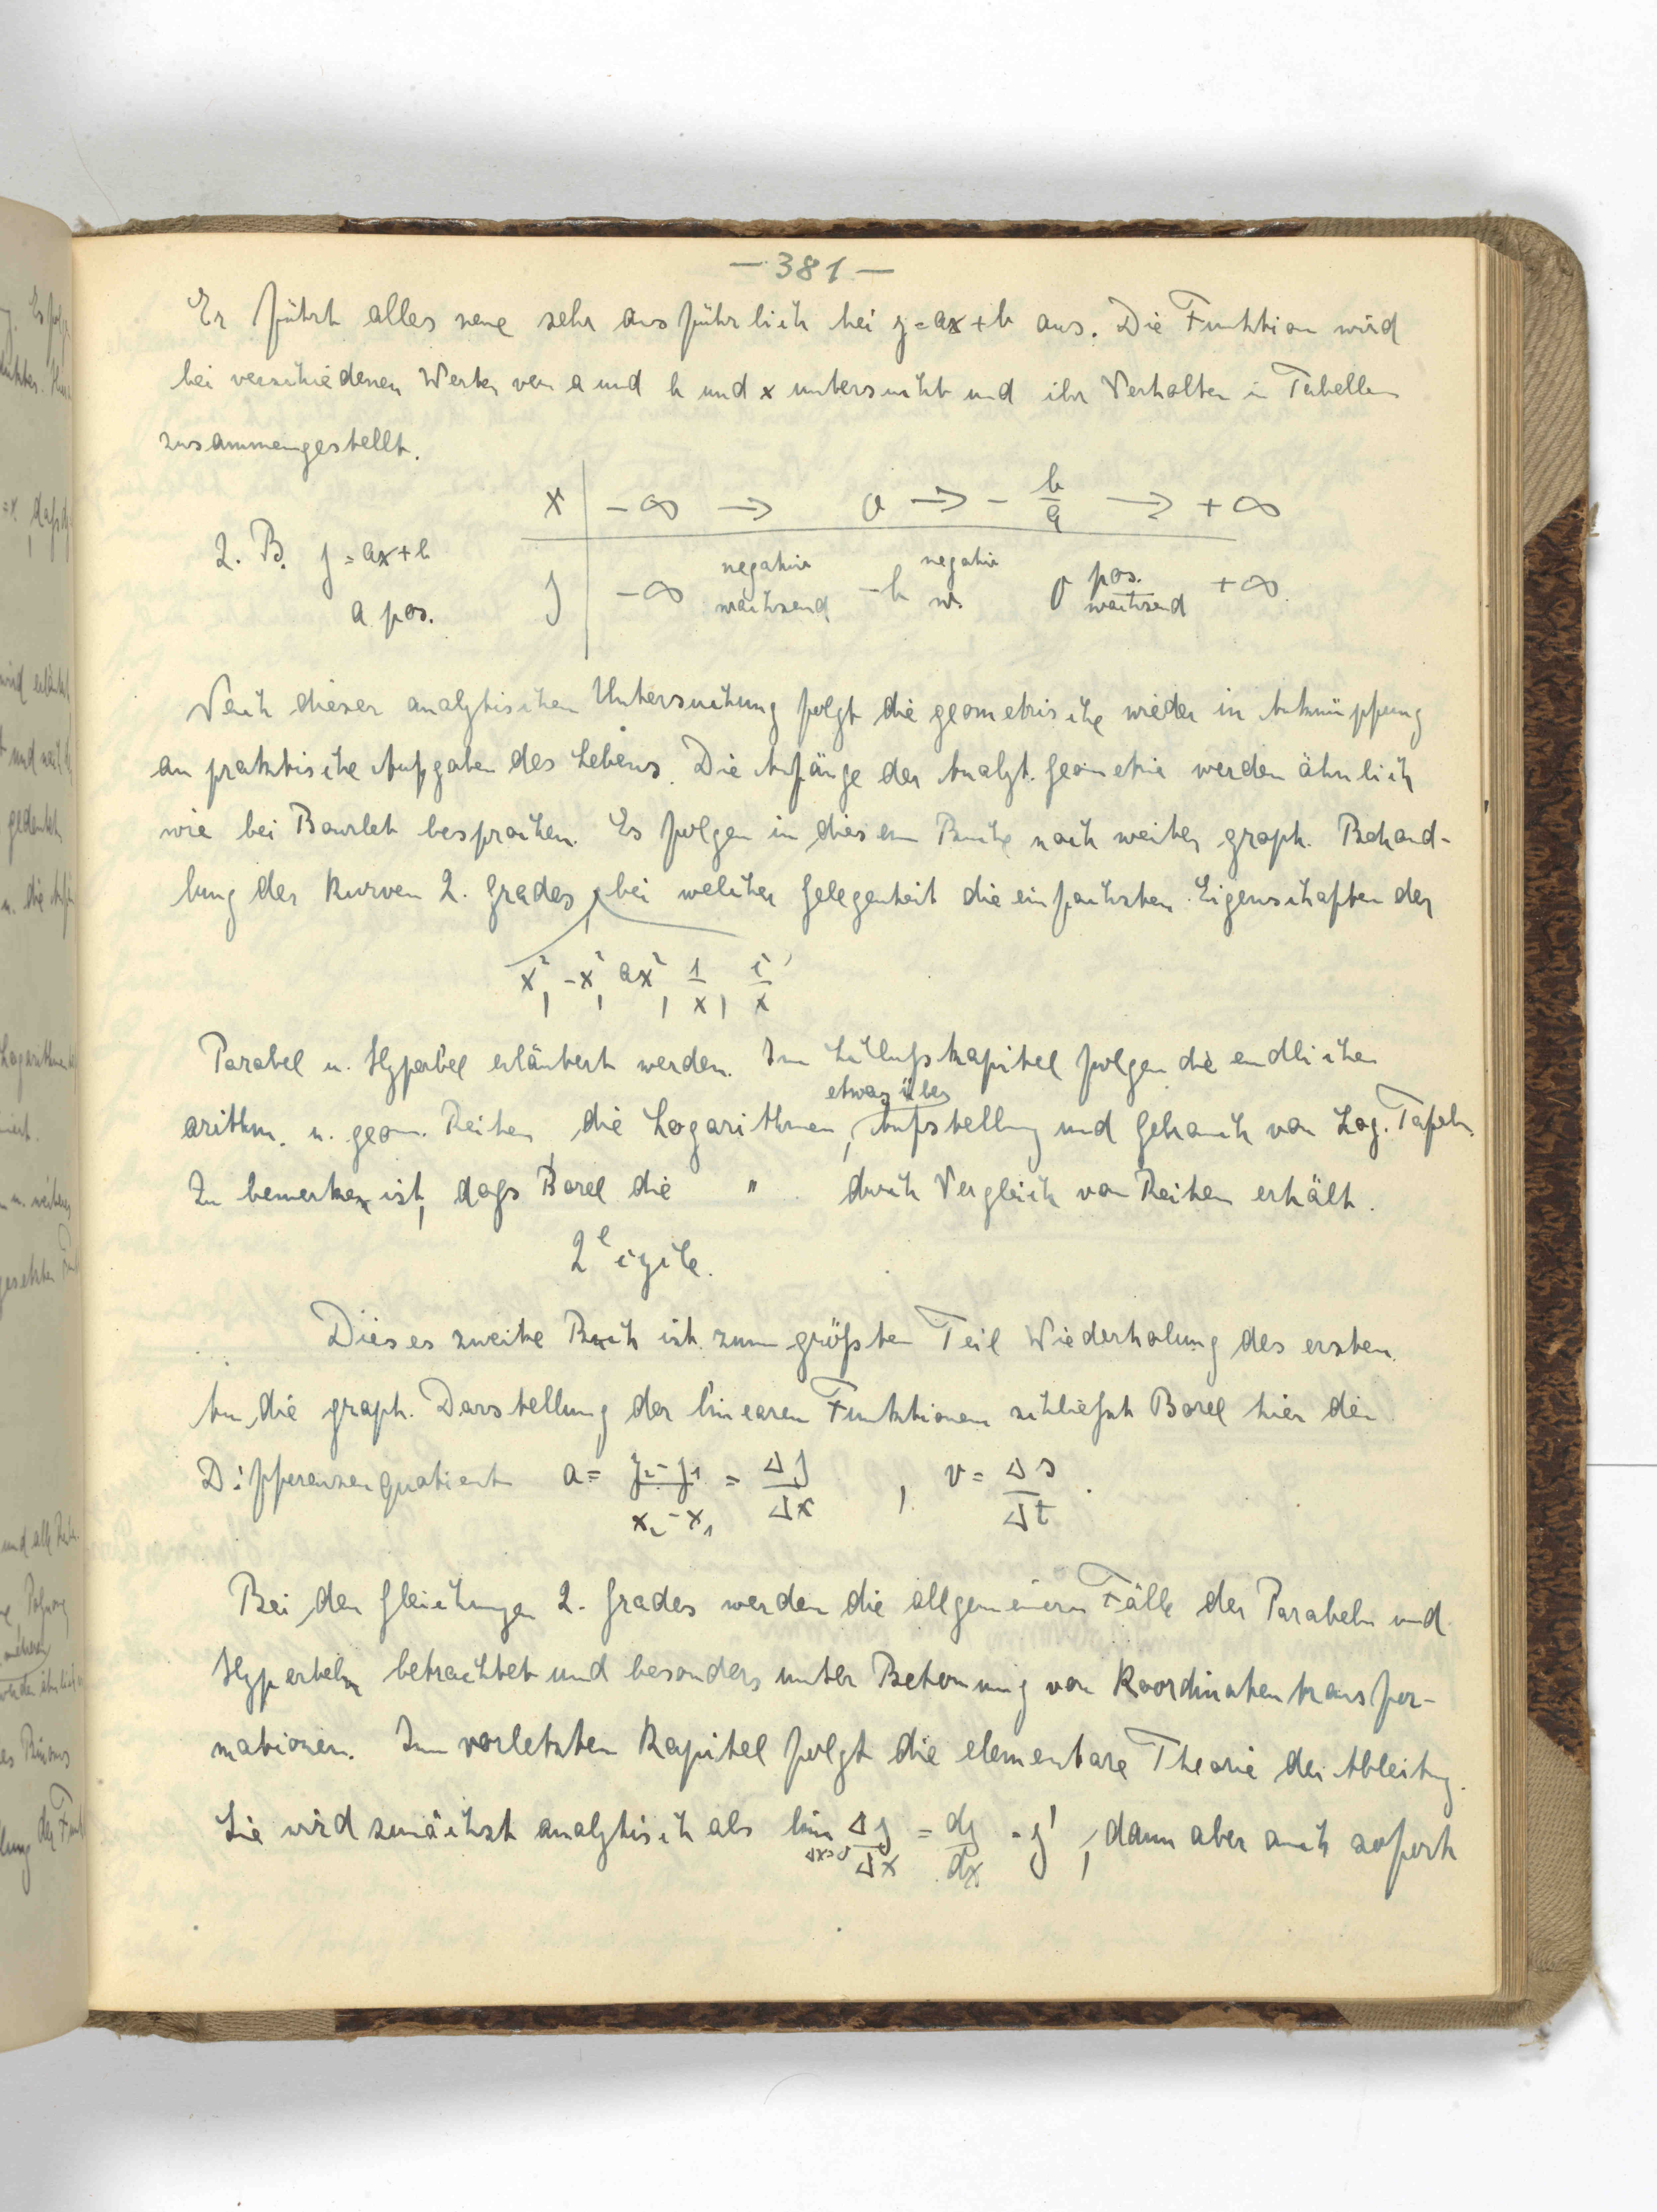 — 381 —
Er führt alles neue sehr ausführlich bei y = ax + b aus. Die Funktion wird
bei verschiedenen Werten von a und b und x untersucht und ihr Verhalten in Tabellen
zusammengestellt.
x | -∞ → 0 → - b/a → +∞
z. B. y = ax + b
a pos.
y | -∞ negativ wachsend -b negativ w. 0 pos. wachsend +∞.
Nach dieser analytischen Untersuchung folgt die geometrische wieder in Anknüpfung
an praktische Aufgaben des Lebens. Die Anfänge der Analyt. Geometrie werden ähnlich
wie bei Bourlet besprochen. Es folgen in diesem Buche noch weiter graph. Behand-
lung der Kurven 2. Grades, bei welcher Gelegenheit die einfachsten Eigenschaften der
x², -x², ax², 1/x, c/x
Parabel u. Hyperbel erläutert werden. Im Schlußkapitel folgen die endlichen
etwas über
arithm. u. geom. Reihen, die Logarithmen, Aufstellung und Gebrauch von Log. Tafeln.
Zu bemerken ist, dass Borel die " durch Vergleich von Reihen erhält.
2e cycle.
Dieses zweite Buch ist zum größten Teil Wiederholung des ersten.
An die graph. Darstellung der linearen Funktionen schließt Borel hier den
Differenzenquotient a = y₂ - y₁ / x₂ - x₁ = Δy / Δx , v = Δs / Δt .
Bei den Gleichungen 2. Grades werden die allgemeinern Fälle der Parabeln und
Hyperbeln betrachtet und besonders unter Betonung von Koordinatentransfor-
mationen. Im vorletzten Kapitel folgt die elementare Theorie der Ableitung.
Sie wird zunächst analytisch als lim Δx=0 Δy/Δx = dy/dx = y', dann aber auch sofort